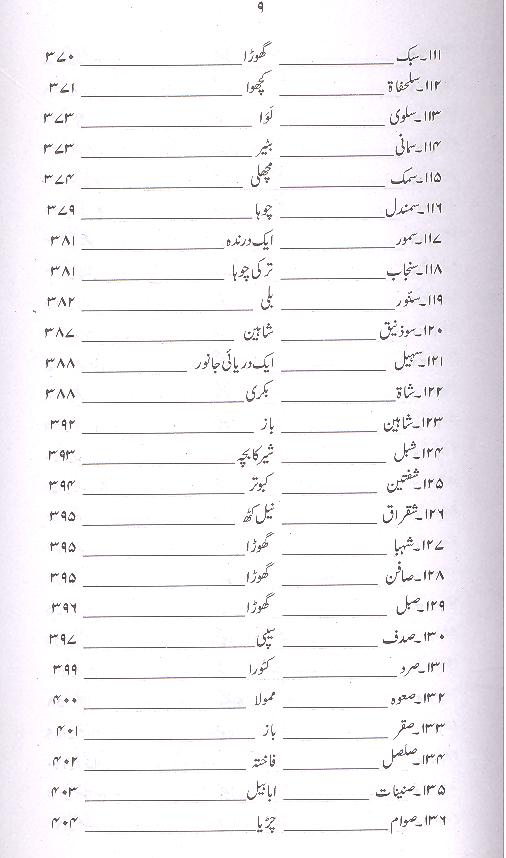 ۹
۱۱۱۔سبک ____________ گھوڑا ____________ ۳۷۰
۱۱۲۔سلحفاۃ ____________ کچھوا ____________ ۳۷۱
۱۱۳۔سلوی ____________ لَوَا ____________ ۳۷۳
۱۱۴۔سمانی ____________ بٹیر ____________ ۳۷۳
۱۱۵۔سمک ____________ مچھلی ____________ ۳۷۴
۱۱۶۔سمندل ____________ چوہا ____________ ۳۷۹
۱۱۷۔سمور ____________ ایک درندہ ____________ ۳۸۱
۱۱۸۔سنجاب ____________ ترکی چوہا ____________ ۳۸۱
۱۱۹۔سنّور ____________ بلی ____________ ۳۸۲
۱۲۰۔سوذنیق ____________ شاہین ____________ ۳۸۷
۱۲۱۔سہیل ____________ ایک دریائی جانور ____________ ۳۸۸
۱۲۲۔شاۃ ____________ بکری ____________ ۳۸۸
۱۲۳۔شاہین ____________ باز ____________ ۳۹۲
۱۲۴۔شبل ____________ شیر کا بچہ ____________ ۳۹۳
۱۲۵۔شفتین ____________ کبوتر ____________ ۳۹۴
۱۲۶۔شقراق ____________ نیل کٹھ ____________ ۳۹۵
۱۲۷۔شہبا ____________ گھوڑا ____________ ۳۹۵
۱۲۸۔صافن ____________ گھوڑا ____________ ۳۹۵
۱۲۹۔صبل ____________ گھوڑا ____________ ۳۹۶
۱۳۰۔صدف ____________ سیپی ____________ ۳۹۷
۱۳۱۔صرد ____________ کٹورا ____________ ۳۹۹
۱۳۲۔صعوہ ____________ ممولا ____________ ۴۰۰
۱۳۳۔صقر ____________ باز ____________ ۴۰۱
۱۳۴۔صلصل ____________ فاختہ ____________ ۴۰۲
۱۳۵۔صنینات ____________ ابابیل ____________ ۴۰۳
۱۳۶۔صوام ____________ چڑیا ____________ ۴۰۴